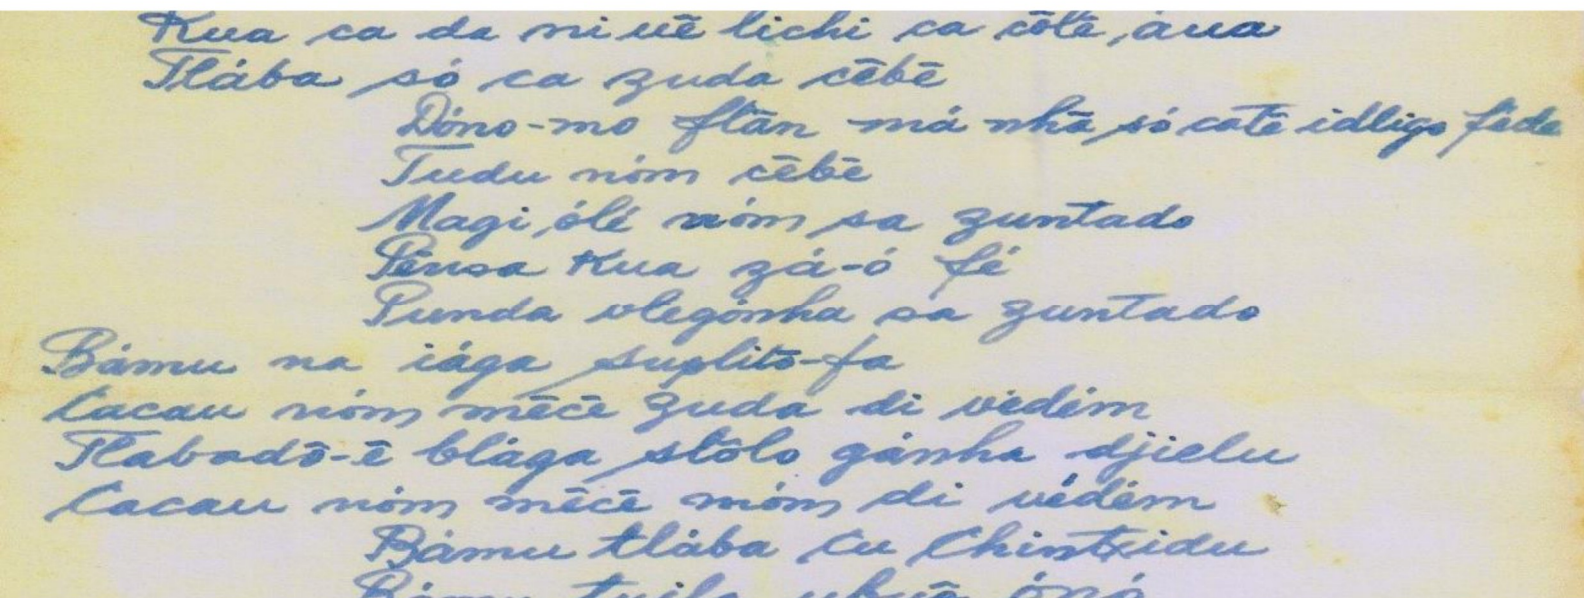 Kua ca da ni uē lichi ca cōlē, áua
Tlába só ca zuda cēbē
Dóno-mo flān má nhā só catē idligo féde
Tudu nóm cēbē
Magi, ólé nóm sa zuntado
Pēnsa Kua zá-ó fé
Punda vlegónha sa zuntado
Bámu na iága suplitō-fa
Cacau nóm mēcē zuda di védém
Tlabadō-ē blága stōlo gánha djielu
Cacau nóm mēcē móm di védém
Bámu tlába cu Chintxidu
Bámu